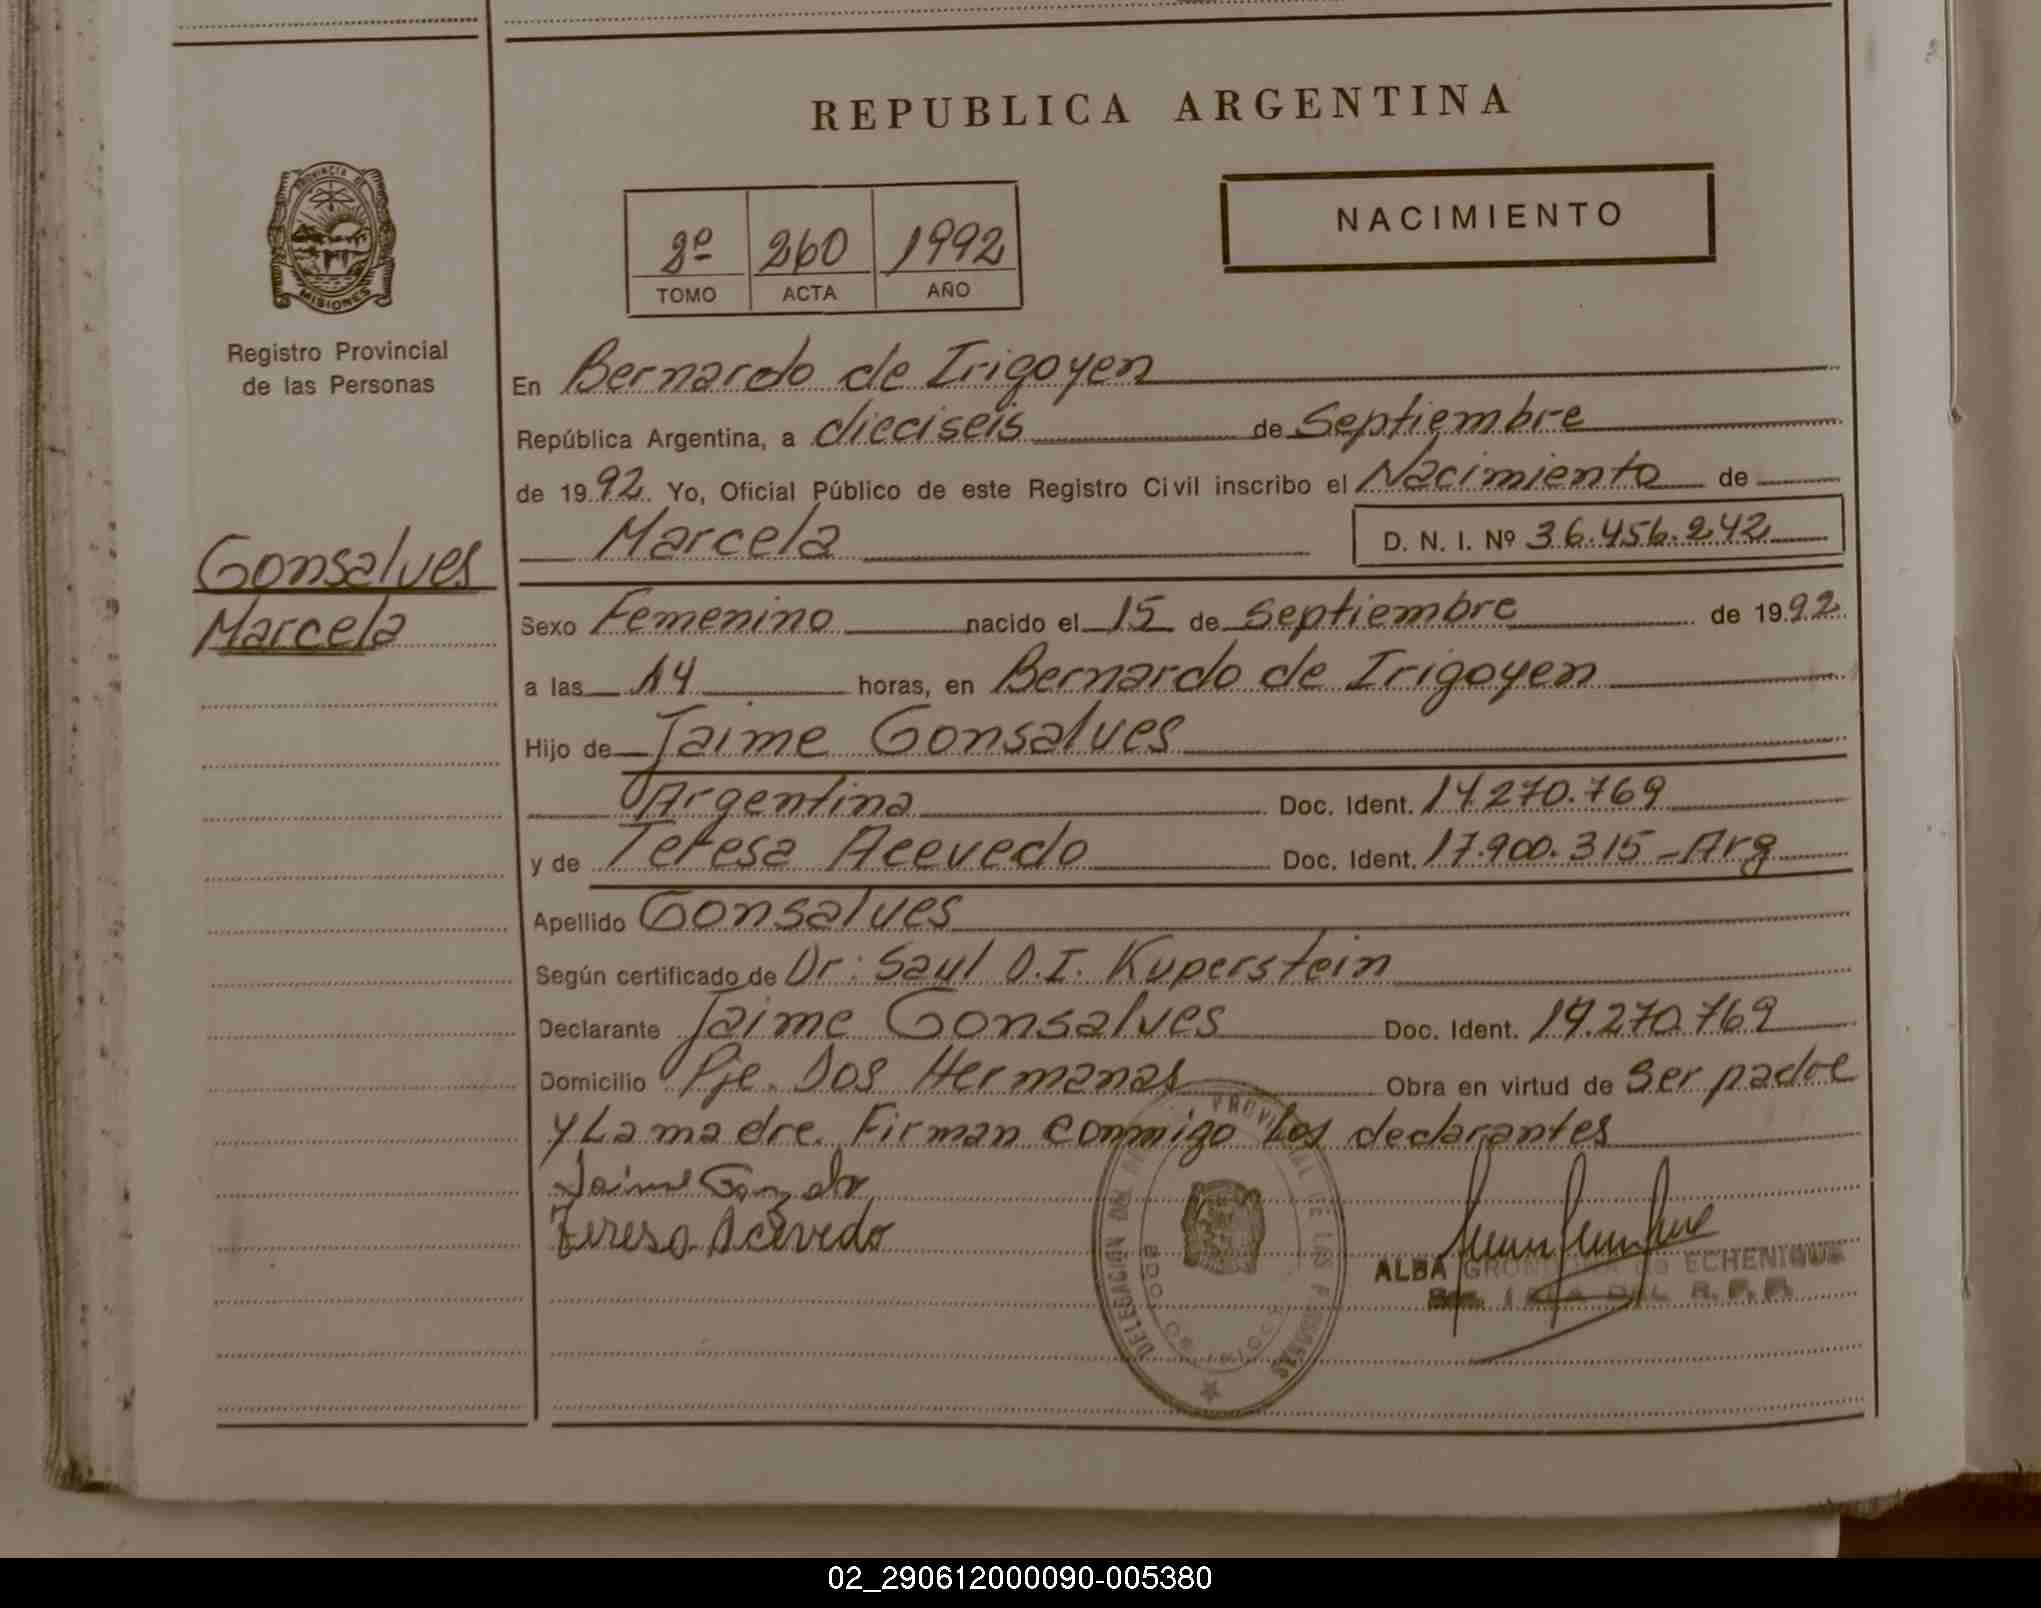 REPUBLICA ARGENTINA
PROVINCIA DE
MISIONES
Registro Provincial
de las Personas
2º 260 1992
TOMO ACTA AÑO
NACIMIENTO
En Bernardo de Irigoyen
República Argentina, a dieciseis de Septiembre
de 1992. Yo, Oficial Público de este Registro Civil inscribo el Nacimiento de
Marcela D. N. I. Nº 36.456.242
Gonsalves
Marcela
Sexo Femenino nacido el 15 de Septiembre de 1992
a las 14 horas, en Bernardo de Irigoyen
Hijo de Jaime Gonsalves
Argentina Doc. Ident. 14.270.769
y de Teresa Acevedo Doc. Ident. 17.900.315 - Arg
Apellido Gonsalves
Según certificado de Dr: Saul O.I. Kuperstein
Declarante Jaime Gonsalves Doc. Ident. 14.270.769
Domicilio Pje. Dos Hermanas Obra en virtud de Ser padre
y La madre. Firman conmigo los declarantes
Jaime
Teresa Acevedo
DELEGACION DEL PROVINCIAL DE LAS PERSONAS
BDO. DE IRIGOYEN
ALBA GRONDONA de ECHENIQUE
DEL R. P. P.
02_290612000090-005380